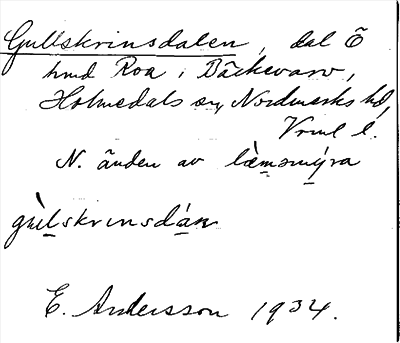 Gullskrinsdalen, dal Ö
hmd Roa i Bäckevarv,
Holmedals sn, Nordmarks hd,
Vrml l.
N. änden av læ̀msmýra
gùlskrinsdán
E. Andersson 1934.